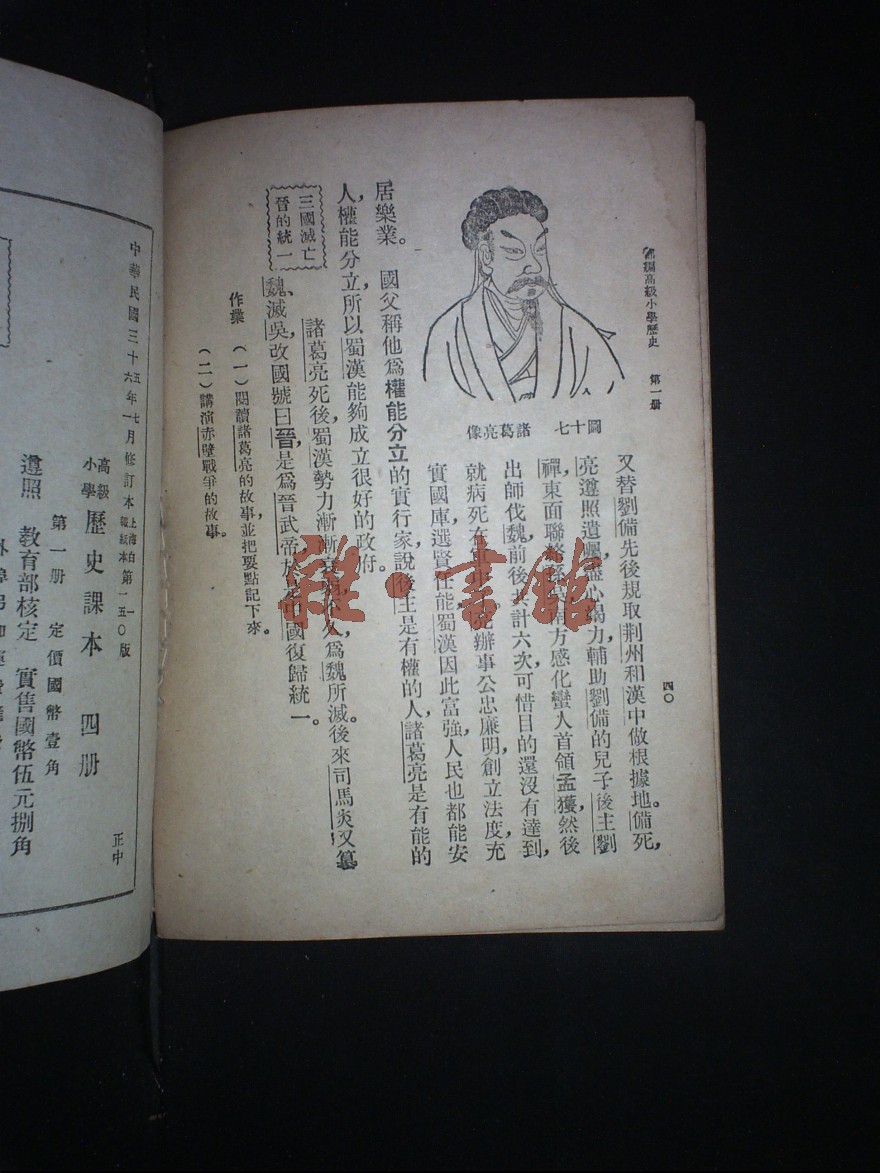 高級小學歷史 第一册
四〇
圖十七 諸葛亮像
又替劉備先後規取荆州和漢中做根據地。備死，
亮遵照遺囑，盡心竭力，輔助劉備的兒子後主劉
禪，東面聯絡孫吳，南方感化蠻人首領孟獲，然後
出師伐魏，前後共計六次，可惜目的還沒有達到，
就病死在軍中。他辦事公忠廉明，創立法度，充
實國庫，選賢任能，蜀漢因此富強，人民也都能安
居樂業。 國父稱他爲權能分立的實行家，說後主是有權的人，諸葛亮是有能的
人，權能分立，所以蜀漢能夠成立很好的政府。
三國滅亡
晉的統一
諸葛亮死後，蜀漢勢力漸漸衰弱，不久爲魏所滅，後來司馬炎又篡
魏，滅吳，改國號曰晉，是爲晉武帝，於是中國復歸統一。
作業 （一）閱讀諸葛亮的故事，並把要點記下來。
（二）講演赤壁戰爭的故事。
雜·書館
中華民國三十五年七月修訂本
三十六年一月 上海白報紙本第一五〇版
高級小學 歷史課本 四册
第一册 定價國幣壹角
遵照 教育部核定 實售國幣伍元捌角
正中